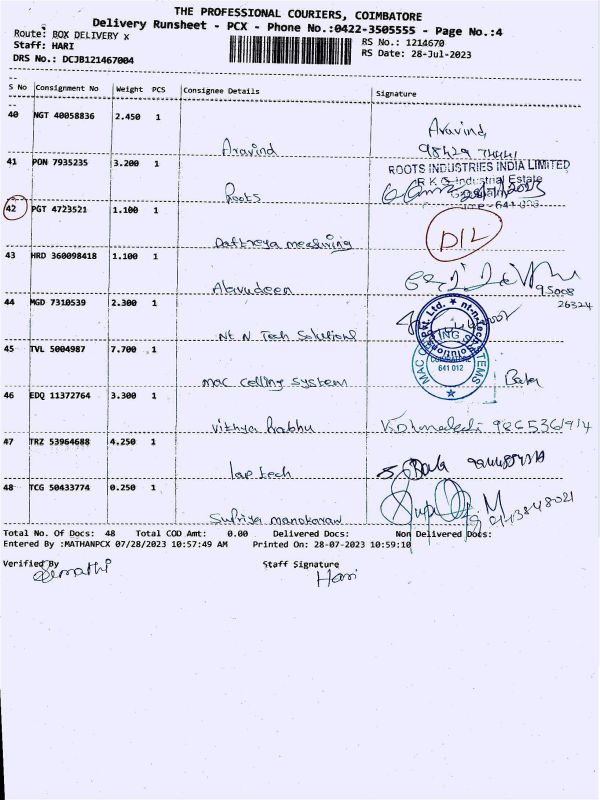 THE PROFESSIONAL COURIERS, COIMBATORE
Delivery Runsheet - PCX - Phone No.:0422-3505555 - Page No.:4
Route: BOX DELIVERY x
RS No.: 1214670
Staff: HARI
RS Date: 28-Jul-2023
DRS No.: DCJB121467004
S No Consignment No Weight PCS Consignee Details Signature
40 NGT 40058836 2.450 1
Aravind
Aravind
41 PON 7935235 3.200 1
Roots
ROOTS INDUSTRIES INDIA LIMITED
R K G Industrial Estate
42 PGT 4723521 1.100 1
DIL
43 HRD 360098418 1.100 1
Alavudeen
95008
26324
44 MGD 7310539 2.300 1
Nt. N Tech Solutions
45 TVL 5004987 7.700 1
641 012
mac Colling System
46 EDQ 11372764 3.300 1
Vithya Prabhu
47 TRZ 53964688 4.250 1
lap tech
48 TCG 50433774 0.250 1
Supriya manokaran
Total No. Of Docs: 48 Total COD Amt: 0.00 Delivered Docs: Non Delivered Docs:
Entered By :MATHANPCX 07/28/2023 10:57:49 AM Printed On: 28-07-2023 10:59:10
Verified By
Staff Signature
Hari